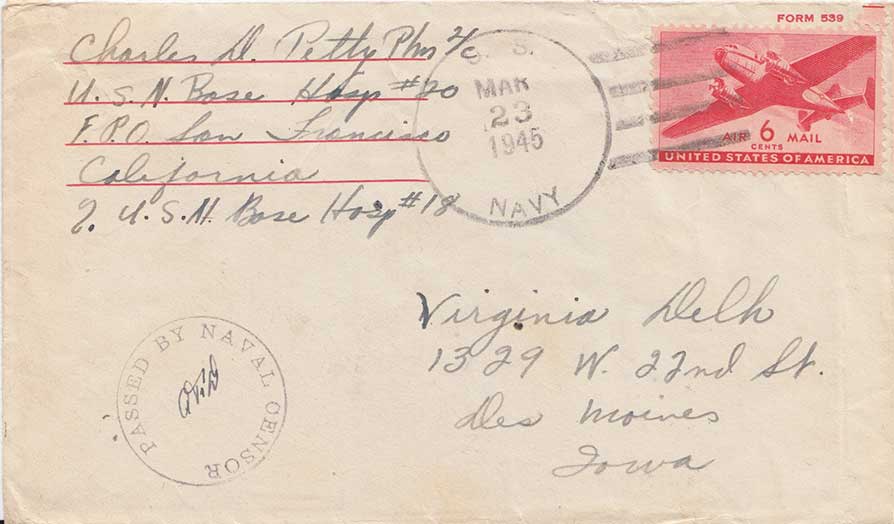 FORM 539
Charles D. Petty Phm 2/c
U.S.N. Base Hosp #20
F.P.O. San Francisco
California
2. U.S.N. Base Hosp #18
U. S.
MAR
23
1945
NAVY
AIR 6 MAIL
CENTS
UNITED STATES OF AMERICA
Virginia Delh
1329 W. 22nd St.
Des Moines
Iowa
PASSED BY NAVAL CENSOR